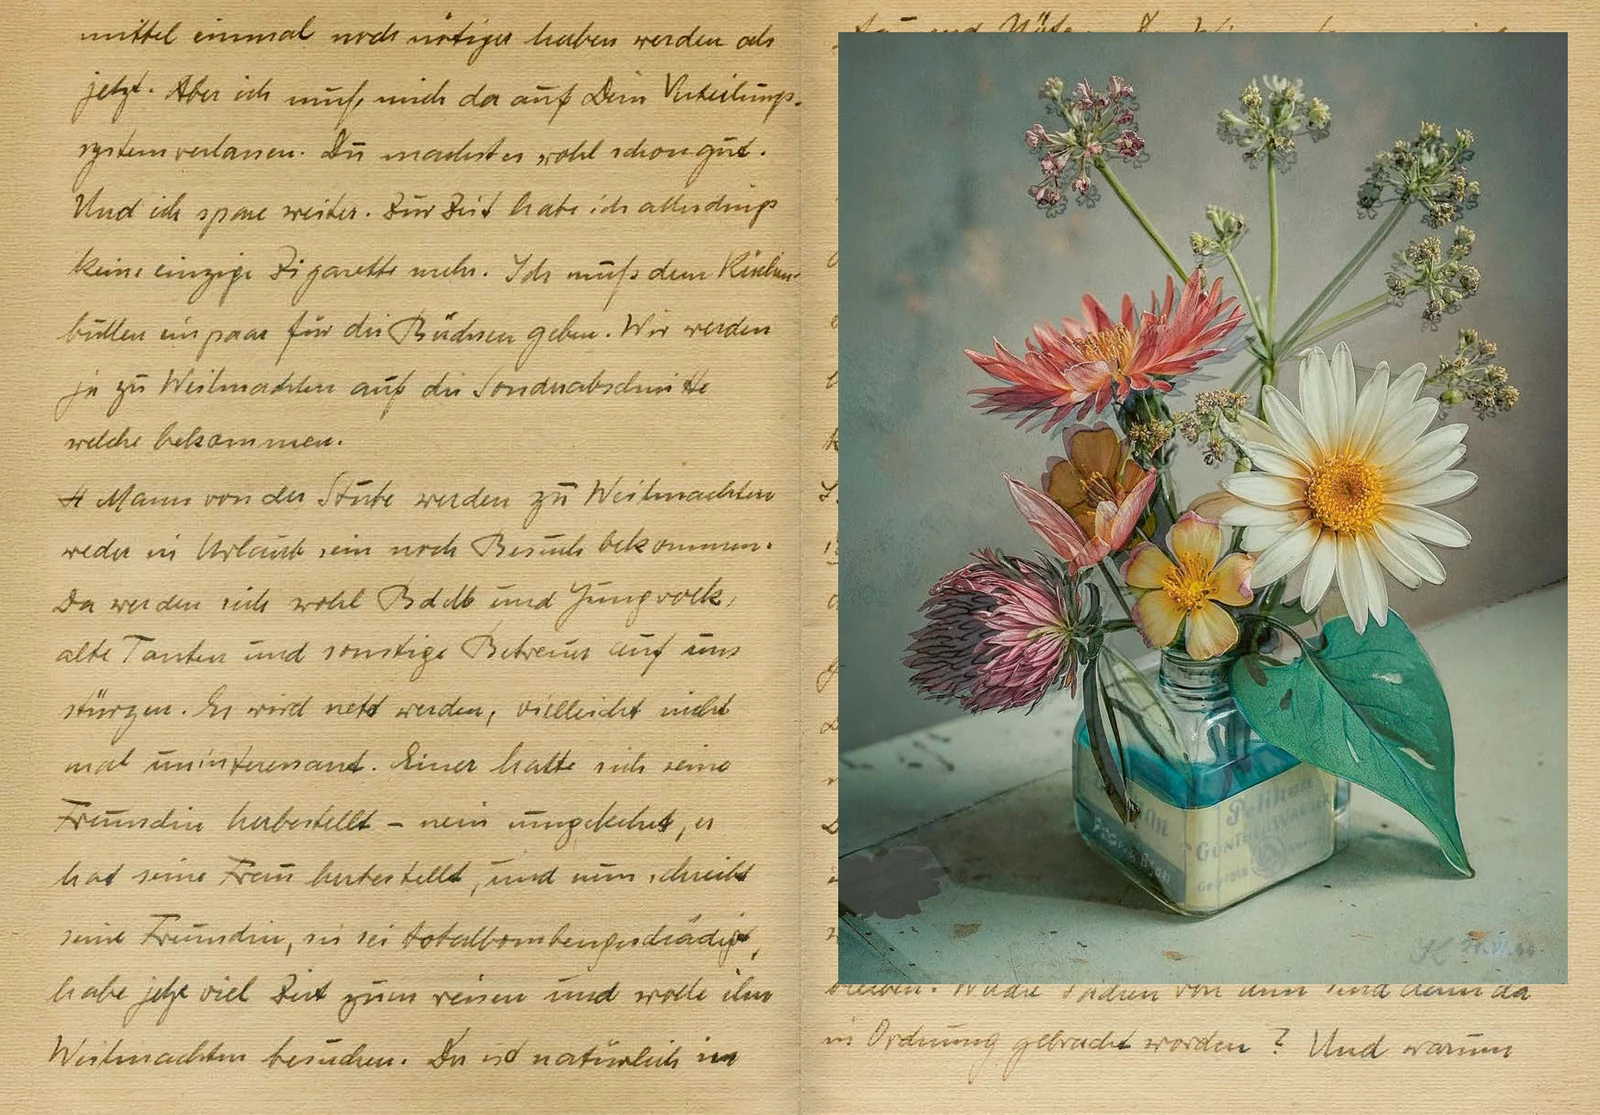 mittel einmal noch nötiger haben werden als
jetzt. Aber ich muß mich da auf Dein Verteilungs-
system verlassen. Du machst es wohl schon gut.
Und ich spare weiter. Zur Zeit habe ich allerdings
keine einzige Zigarette mehr. Ich muß dem Küchen-
bullen ein paar für die Büchsen geben. Wir werden
ja zu Weihnachten auf die Sonderabschnitte
welche bekommen.
4 Mann von der Stube werden zu Weihnachten
weder in Urlaub sein noch Besuch bekommen.
Da werden sich wohl BdM und Jungvolk,
alte Tanten und sonstige Betreuer auf uns
stürzen. Es wird nett werden, vielleicht nicht
mal uninteressant. Einer hatte sich seine
Freundin herbestellt – nein umgekehrt, er
hat seine Frau herbestellt, und nun schreibt
seine Freundin, sie sei totalbombengeschädigt,
habe jetzt viel Zeit zum reisen und wolle ihn
Weihnachten besuchen. Der ist natürlich im
und
bleiben. von dann und dann da
in Ordnung gebracht worden? Und warum
Pelikan
GÜNTHER WAGNER